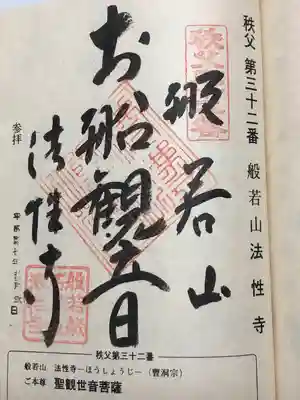 秩父 第三十二番 般若山 法性寺
般若山
お船観音
法性寺
参拝
日
秩父第三十二番
般若山 法性寺―ほうしょうじ―(曹洞宗)
ご本尊 聖観世音菩薩